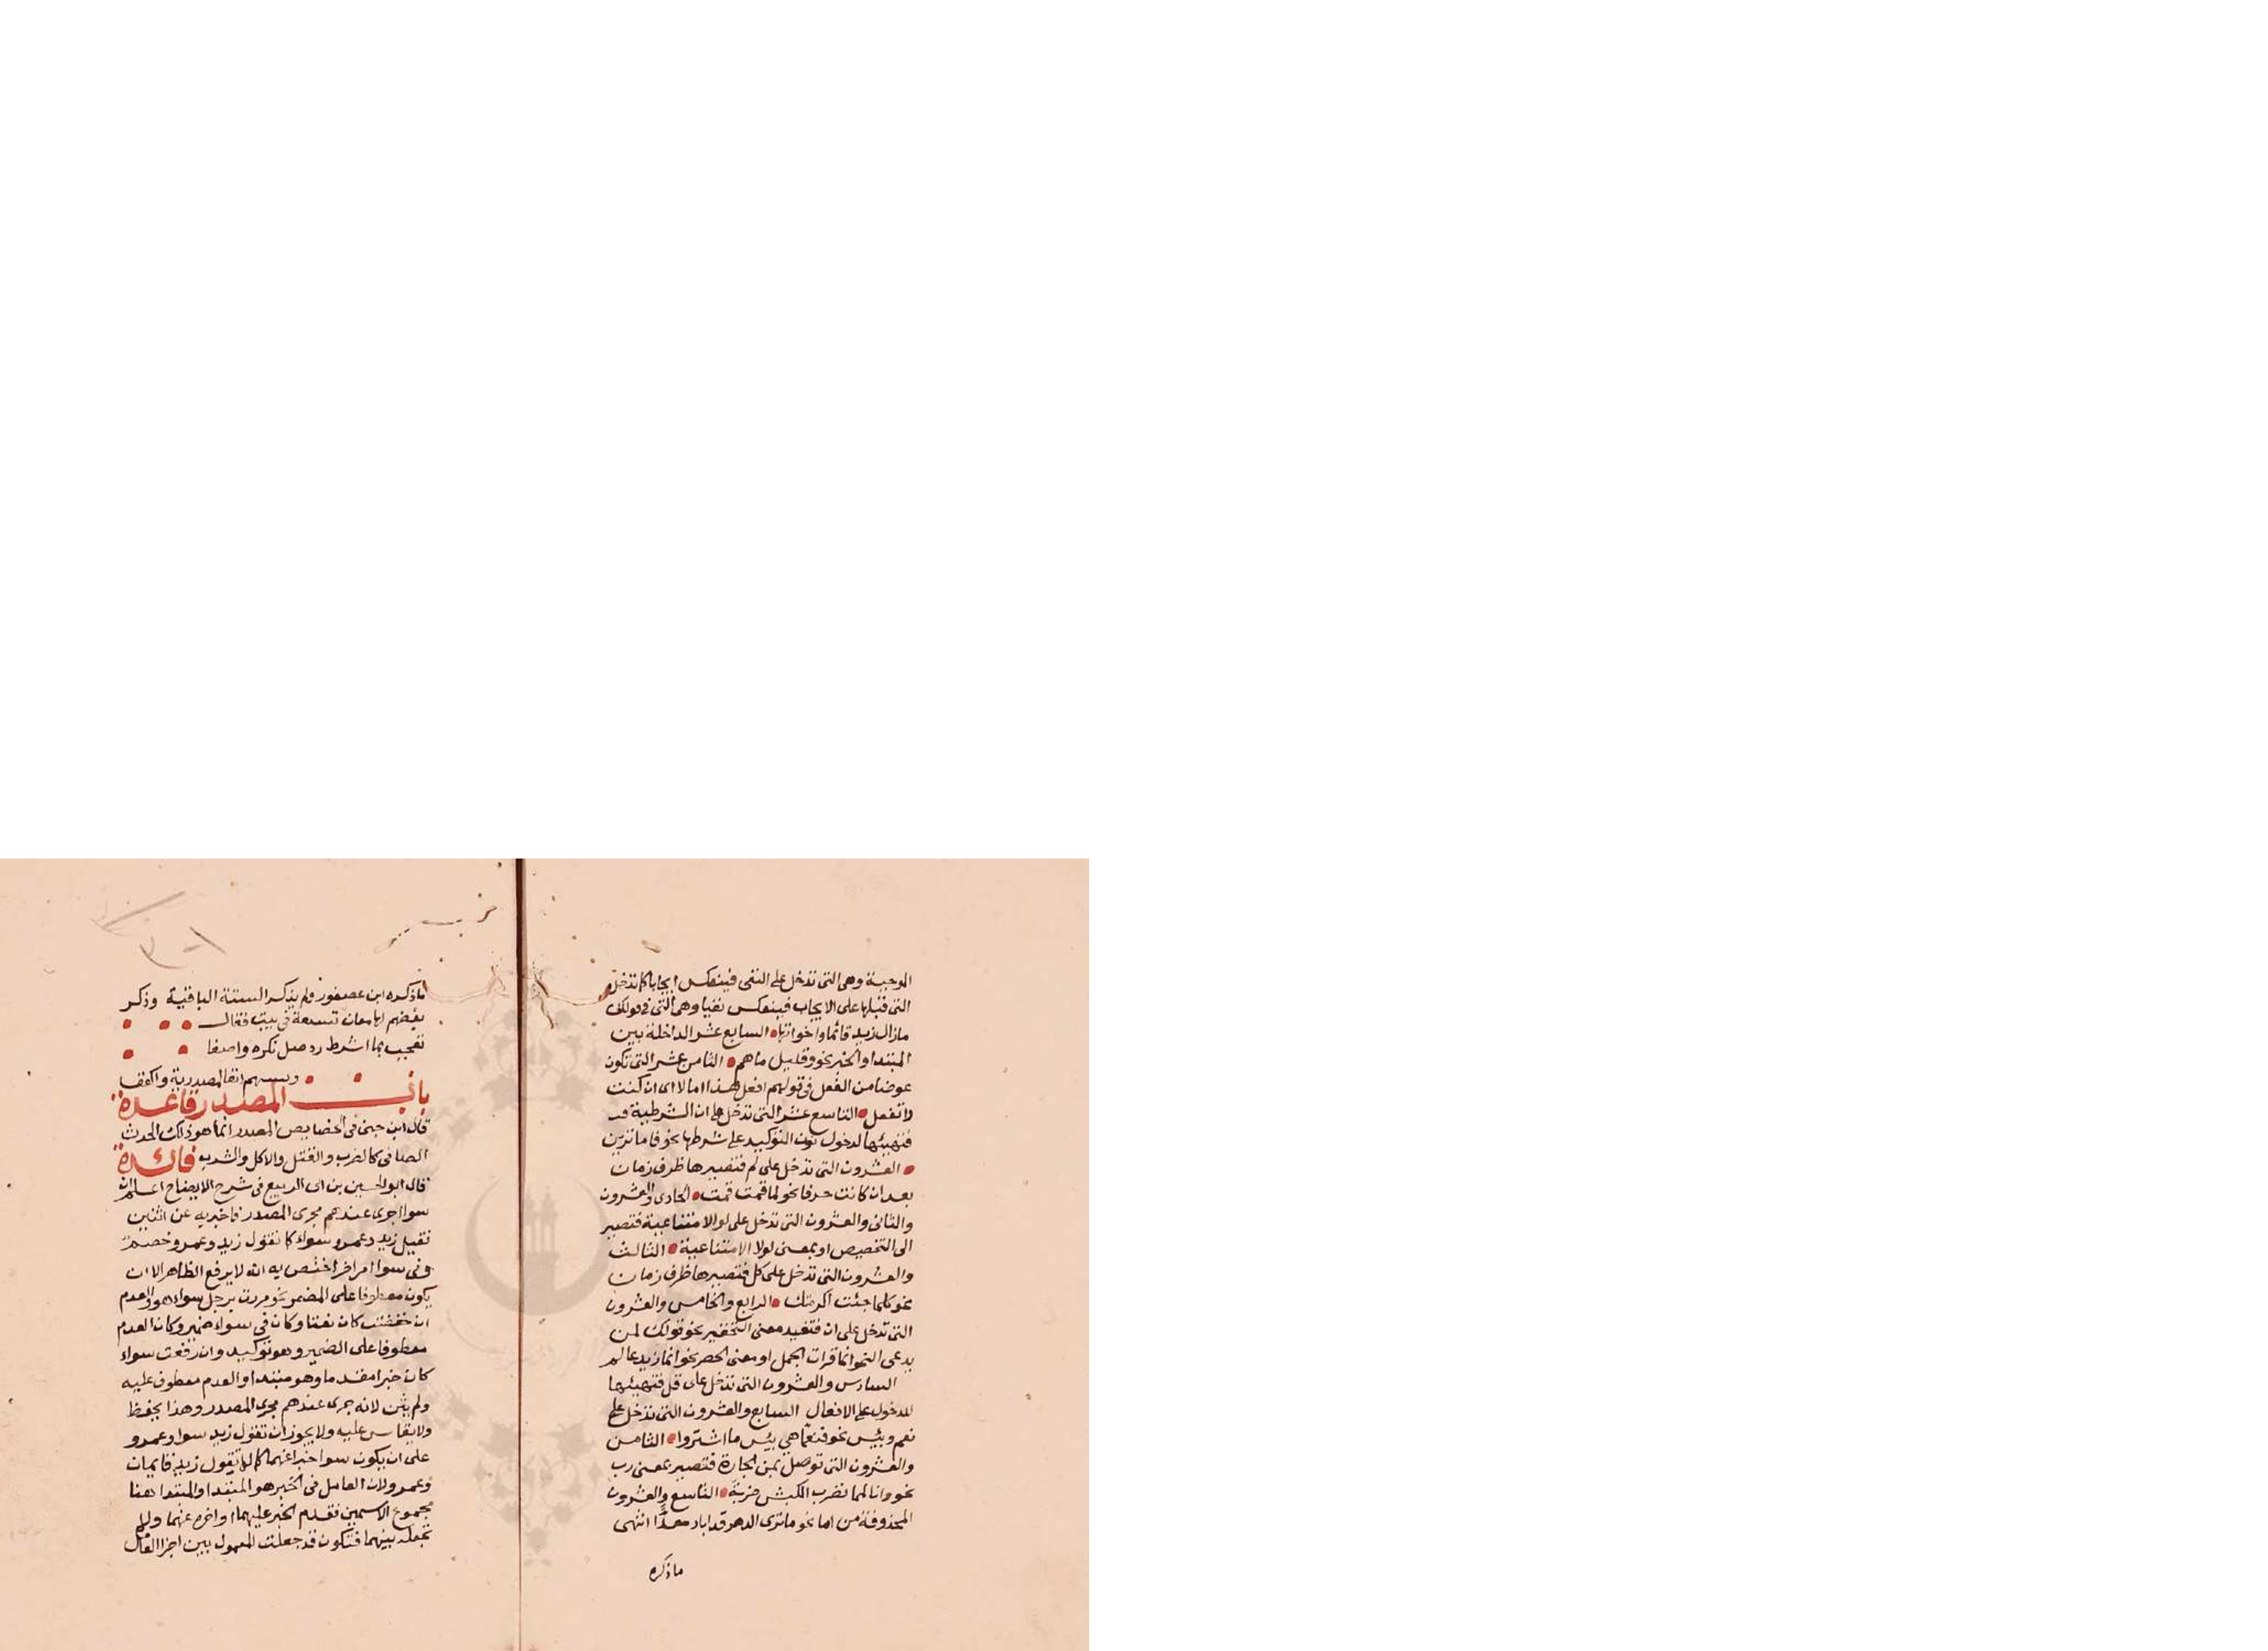 الموجبة وهى التى تدخل على النفى فينعكس ايجابا كما تدخل
التى قبلها على الايجاب فينعكس نفيا وهى التى فى قولك
مازال زيد قائما واخواتها السابع عشر الداخلة بين
المبتدا والخبر نحو وقليل ما هم الثامن عشر التى تكون
عوضا من الفعل فى قولهم افعل هذا امالا اى ان كنت
لا تفعل التاسع عشر التى تدخل على ان الشرطية
فتهيئها لدخول نون التوكيد على شرطها نحو فاما ترين
العشرون التى تدخل على لم فتصيرها ظرف زمان
بعد ان كانت حرفا نحو لما قمت قمت الحادى والعشرون
والثانى والعشرون التى تدخل على لو الامتناعية فتصير
الى التخصيص او بمعنى لولا الامتناعية الثالث
والعشرون التى تدخل على كل فتصيرها ظرف زمان
نحو كلما جئت اكرمتك الرابع والخامس والعشرون
التى تدخل على ان فتفيد معنى التحقير نحو قولك لمن
يدعى النحو انما قرات الجمل او معنى الحصر نحو انما زيد عالم
السادس والعشرون التى تدخل على قل فتهيئها
للدخول على الافعال السابع والعشرون التى تدخل على
نعم وبئس نحو فنعما هى بئس ما اشتروا الثامن
والعشرون التى توصل بمن الجارة فتصير بمعنى رب
نحو وانا لمما نضرب الكبش ضربة التاسع والعشرون
المحذوفة من اما نحو ما ترى الدهر قد اباد معدا انتهى
ماذكره
ماذكره ابن عصفور ولم يذكر الستة الباقية وذكر
بعضهم لها معان تسعة فى بيت فقال
تعجب بما اشرط رد صل نكره واصفا
المصدرية واكفف
باب المصدر قاعدة
قال ابن جنى فى الخصايص المصدر انما هو ذلك الحدث
الصافى كالضرب والقتل والاكل والشرب فائدة
قال ابو الحسين بن ابى الربيع فى شرح الايضاح اعلم ان
سوا اجرى عندهم مجرى المصدر فاخبر به عن اثنين
فقيل زيد وعمرو سواء كما تقول زيد وعمرو خصم
وفى سوا امر اخر اختص به انه لا يرفع الظاهر الا ان
يكون معطوفا على المضمر نحو مررت برجل سواء هو والعدم
ان خفضت كان نعتا وكان فى سواء ضمير وكان العدم
معطوفا على الضمير وهو توكيد وان رفعت سواء
كان خبرا مقدما وهو مبتدا والعدم معطوف عليه
ولم يثن لانه جرى عندهم مجرى المصدر وهذا يحفظ
ولا يقاس عليه ولا يجوز ان تقول زيد سوا وعمرو
على ان يكون سوا خبرا عنهما كما لا تقول زيد قايمان
وعمرو ولان العامل فى الخبر هو المبتدا والمبتدا هنا
مجموع الاسمين فقدم الخبر عليهما او اخره عنهما ولا
تجعله بينهما فتكون قد جعلت المعمول بين اجزا العامل